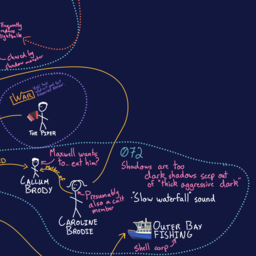 Frequently
Church by
WAR
THE PIPER
Maxwell wants
to... eat him?
CALLUM
BRODY
CAROLINE
BRODIE
Presumably
also a cult
member
072
Shadows are too
dark, shadows seep out
of "thick aggressive dark"
"Slow waterfall" sound
OUTER BAY
FISHING
Shell corp